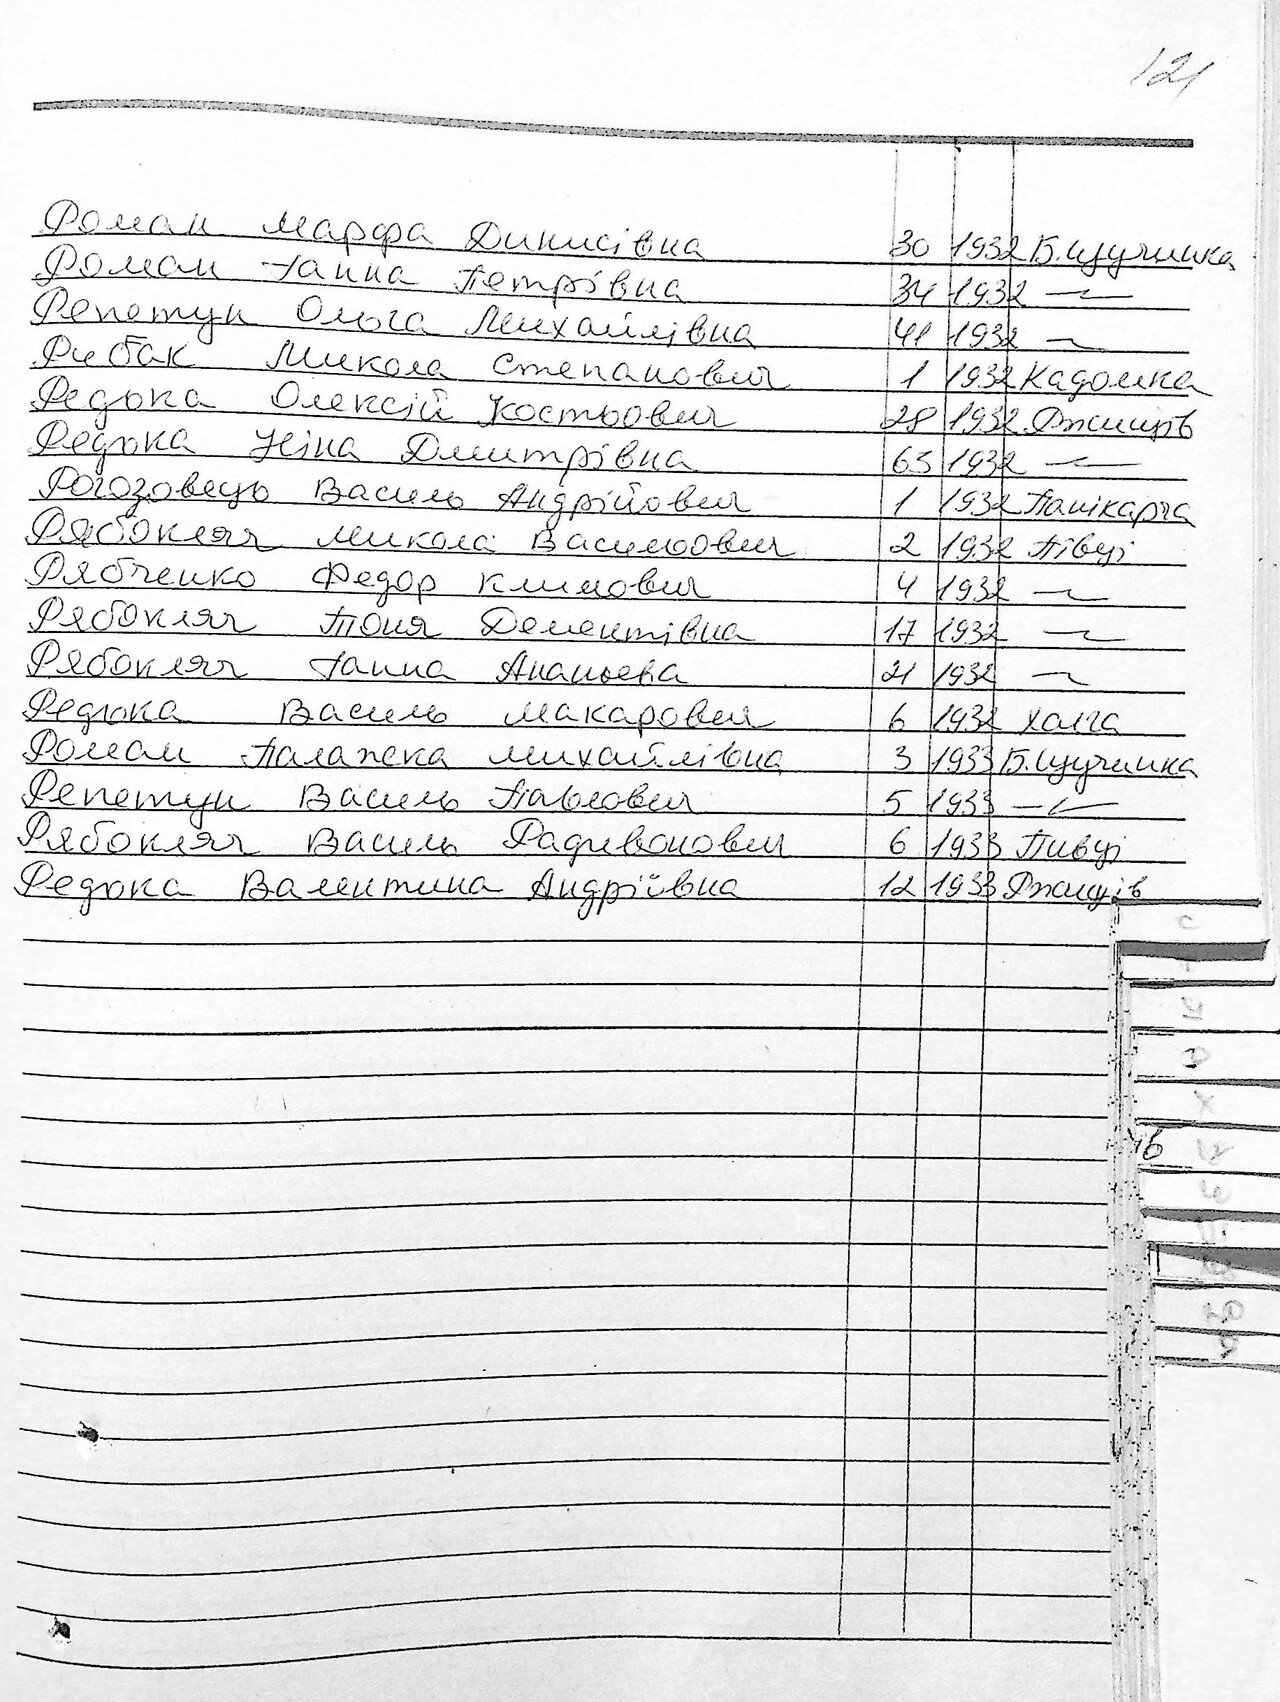 121
Роман Марфа Динисівна 30 1932 Б.щучинка
Роман Ганна Петрівна 34 1932 —〃—
Репетун Ольга Михайлівна 41 1932 —〃—
Рибак Микола Степанович 1 1932 Кадомка
Редька Олексій Костьович 28 1932 Ржищів
Редька Ніна Дмитрівна 63 1932 —〃—
Рогозовець Василь Андрійович 1 1932 Панікарча
Рябокляч Микола Васильович 2 1932 Півці
Рябченко Федор Климович 4 1932 —〃—
Рябокляч Тоня Дементівна 17 1932 —〃—
Рябокляч Ганна Ананьева 21 1932 —〃—
Редька Василь Макарович 6 1932 Халча
Роман Палажка Михайлівна 3 1933 Б.щучинка
Репетун Василь Павлович 5 1933 —〃—
Рябокляч Василь Радивонович 6 1933 Пивці
Редька Валентина Андріївна 12 1933 Ржищів